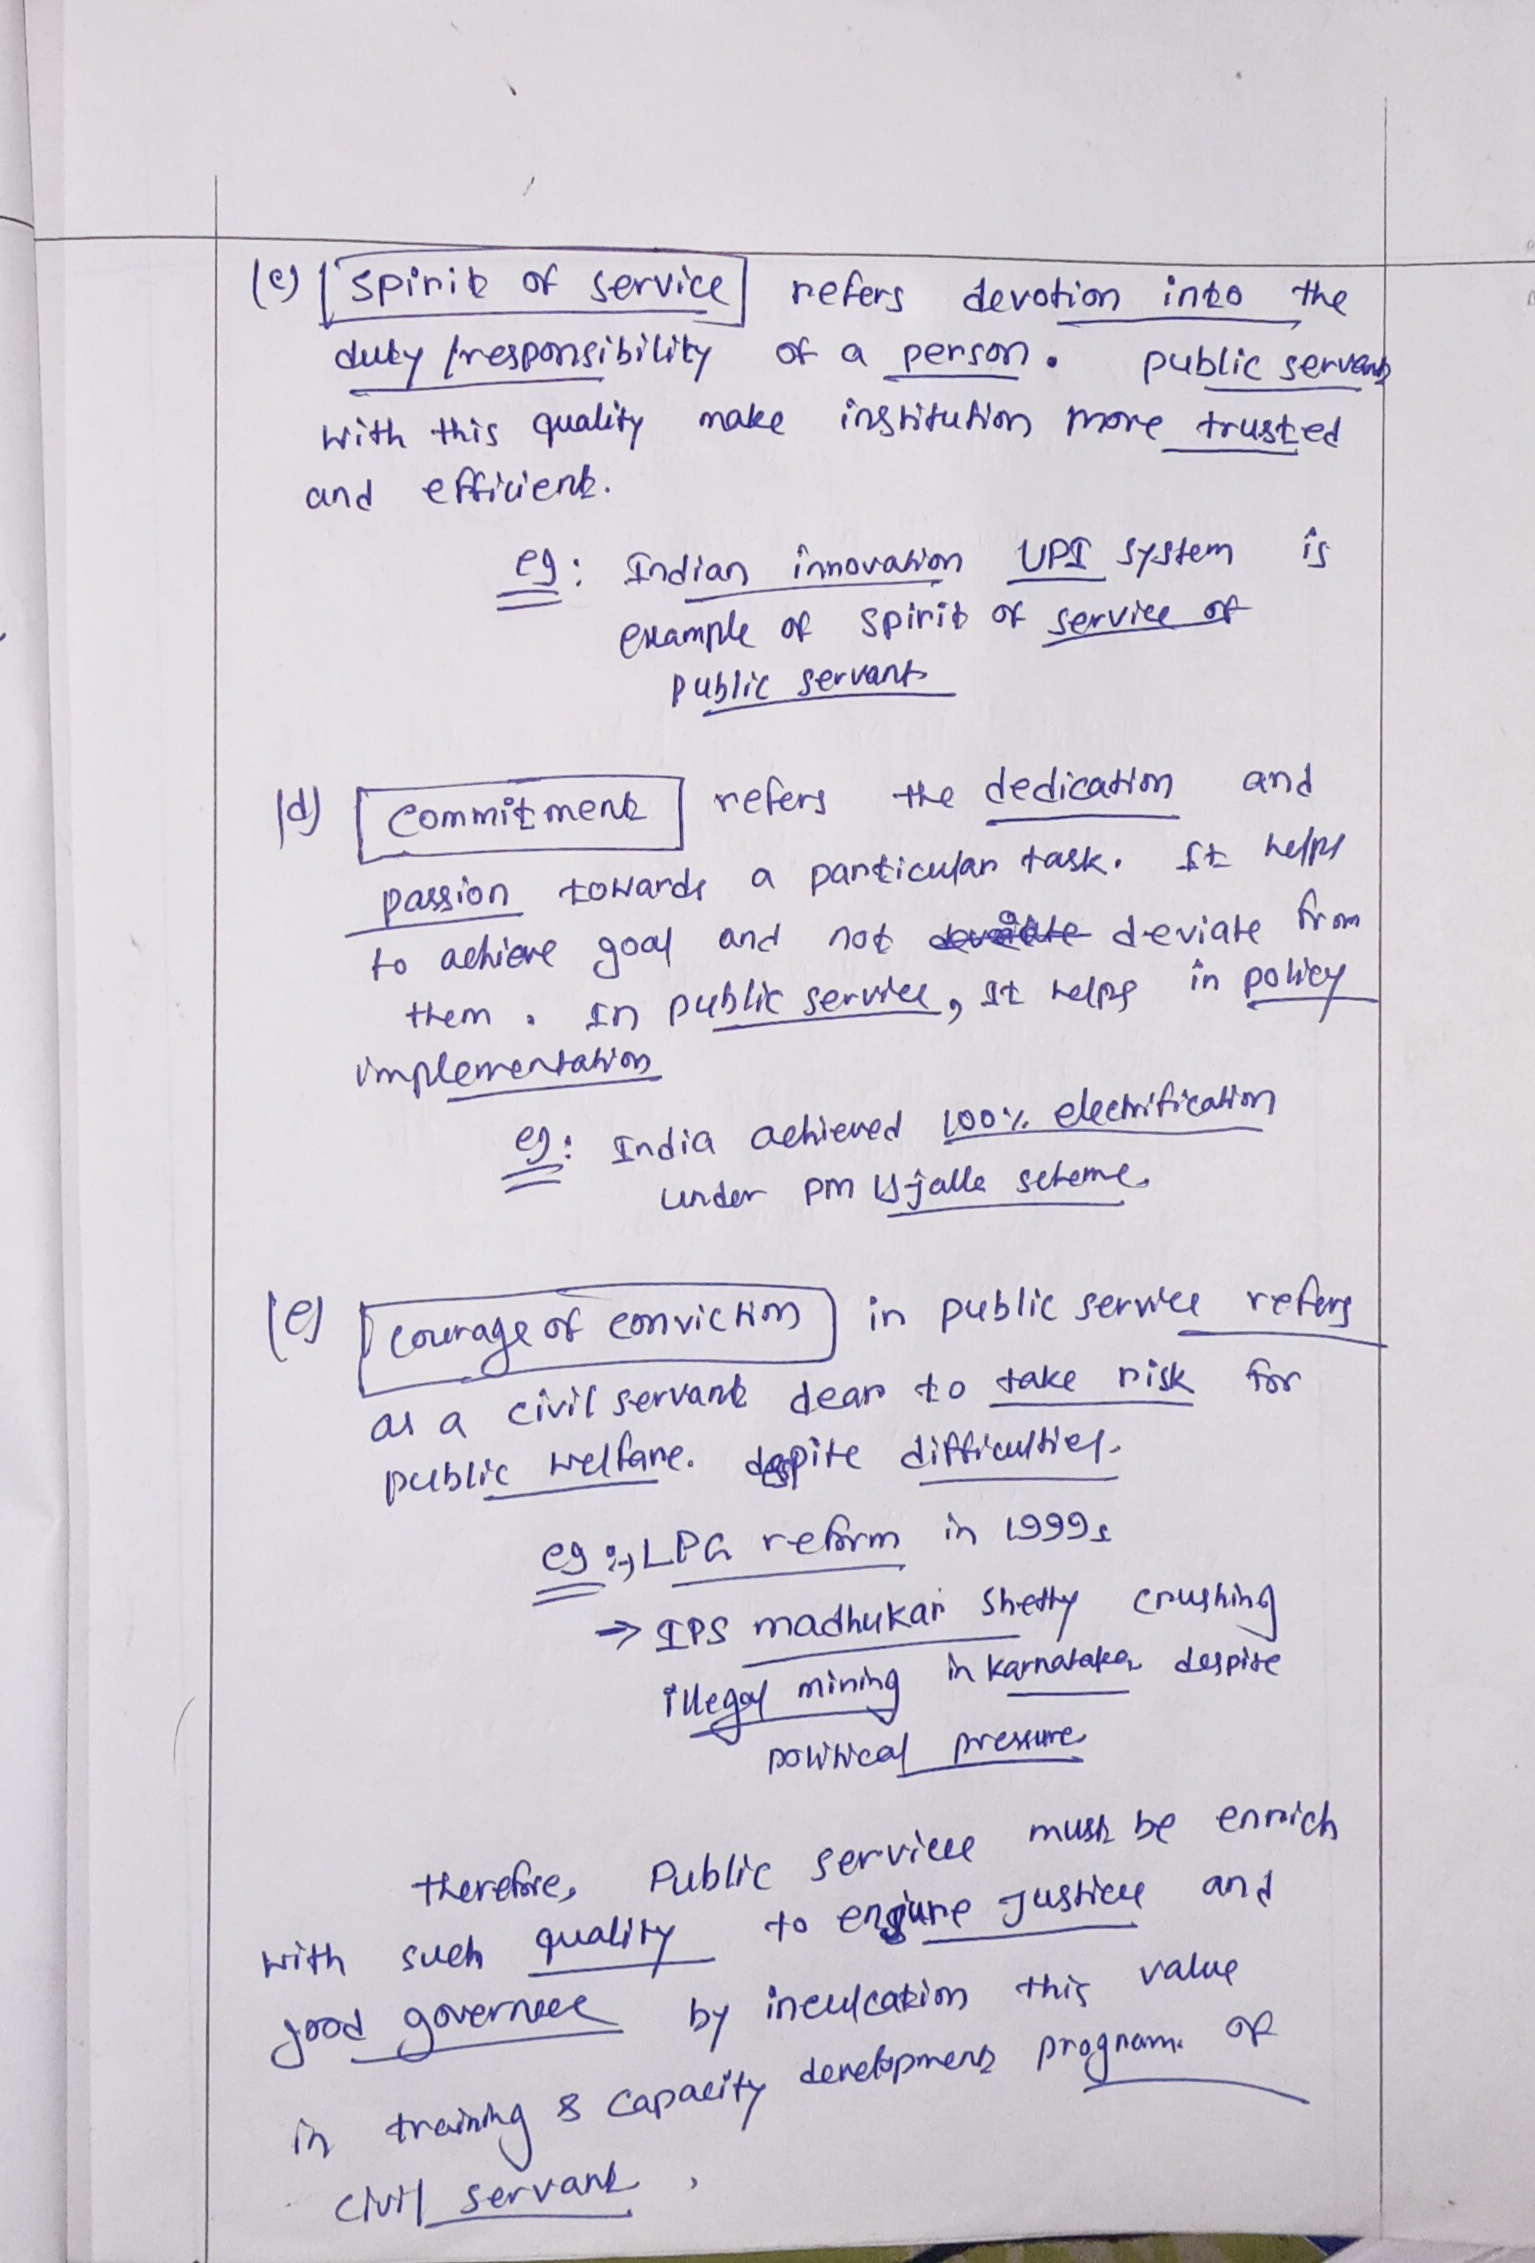 (c) spirit of service refers devotion into the
duty/responsibility of a person. public servants
with this quality make institution more trusted
and efficient.
eg: Indian innovation UPI system is
example of spirit of service of
public servants
(d) commitment refers the dedication and
passion towards a particular task. It helps
to achieve goal and not deviate from
them. In public service, It helps in policy
implementation
eg: India achieved 100% electrification
under pm Ujjalla scheme.
(e) courage of conviction in public service refers
as a civil servant dear to take risk for
public welfare. despite difficulties.
eg: → LPG reform in 1999s
→ IPS madhukar shetty crushing
illegal mining in karnataka despite
political pressure
therefore, Public service must be enrich
with such quality to ensure justice and
good governece by inculcation this value
in training & capacity development program of
civil servant.